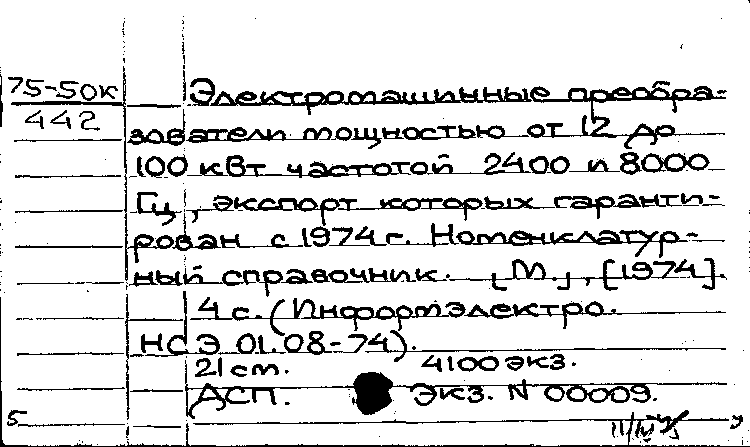 75-50к
442
Электромашинные преобра-
зователи мощностью от 12 до
100 кВт частотой 2400 и 8000
Гц, экспорт которых гаранти-
рован с 1974 г. Номенклатур-
ный справочник. [М.], [1974].
4 с. (Информэлектро.
НСЭ 01.08-74).
21 cm. 4100 экз.
ДСП. Экз. N 00009.
5